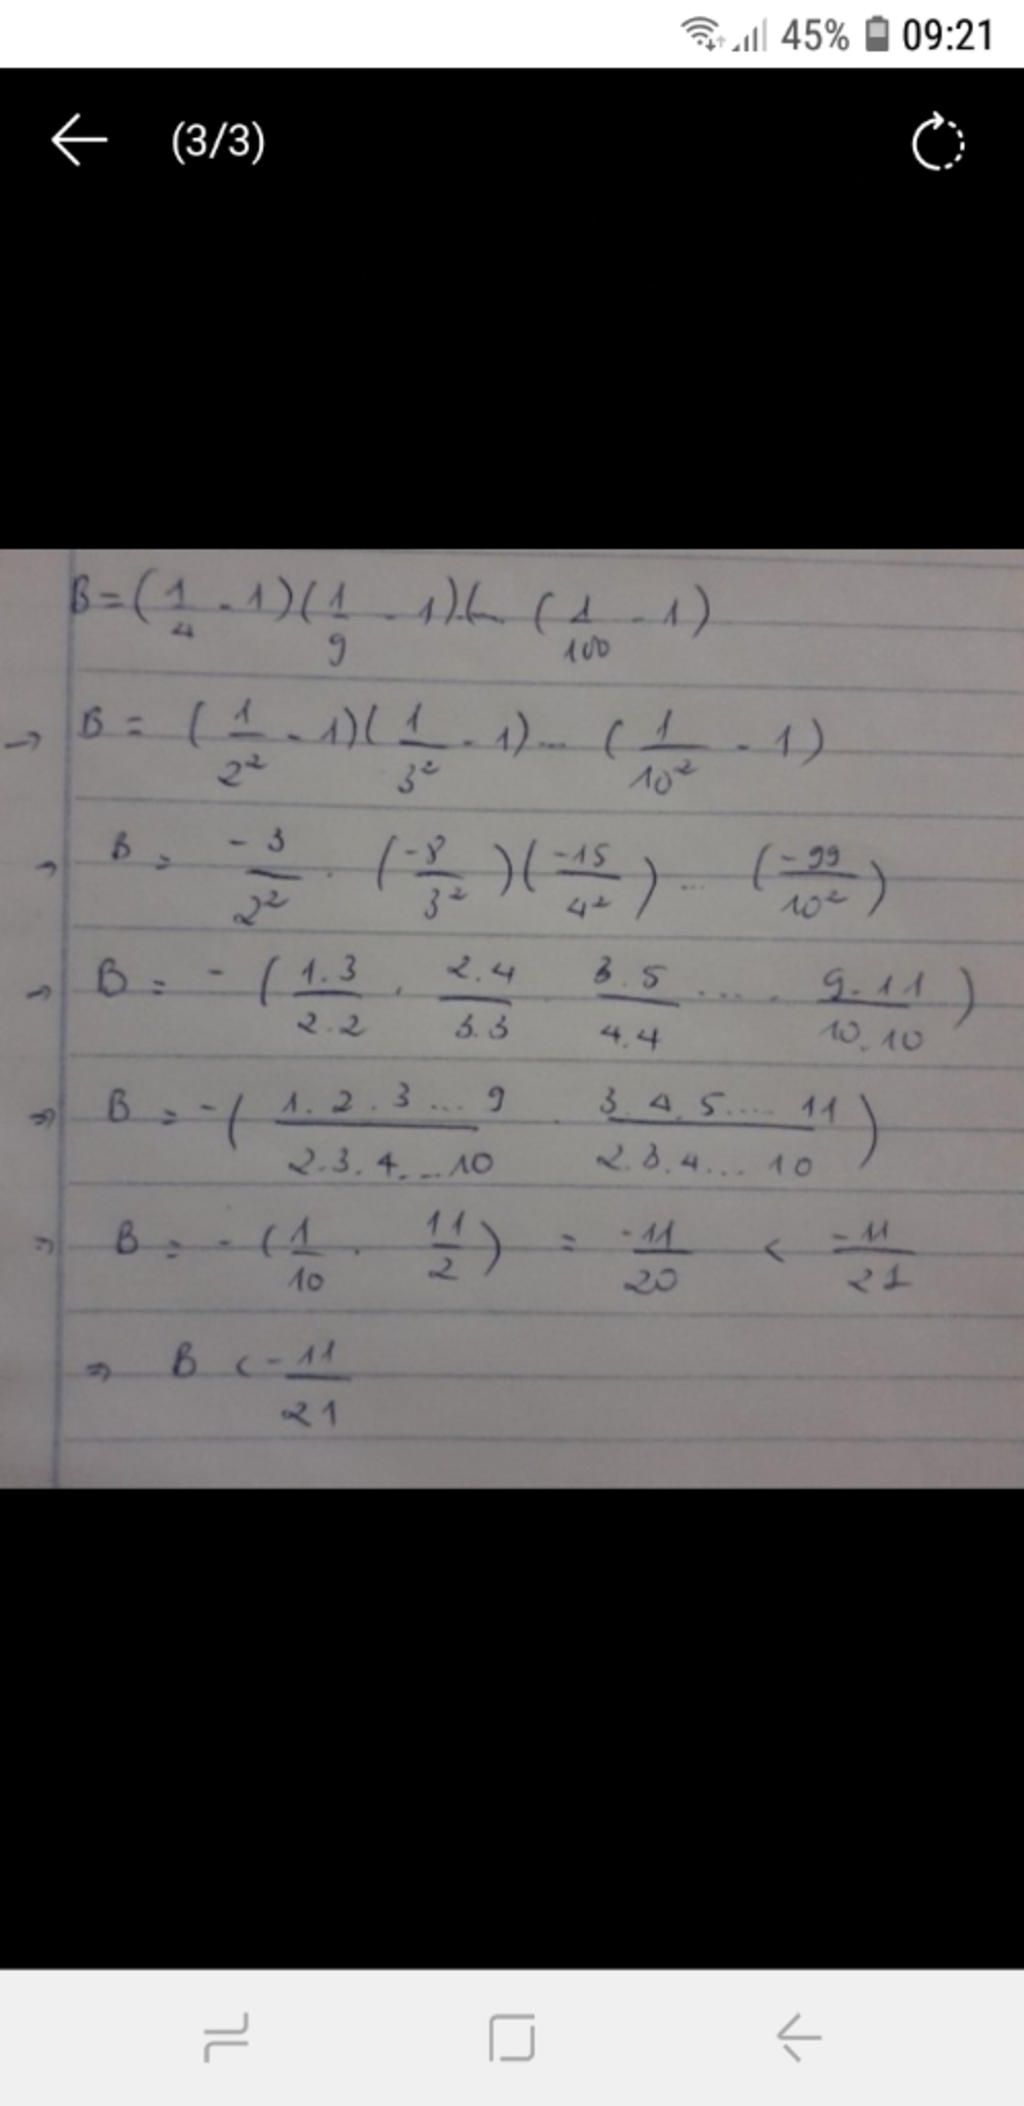 45% 09:21
(3/3)
B = (1/4 - 1)(1/9 - 1)(... (1/100 - 1)
→ B = (1/2² - 1)(1/3² - 1)... (1/10² - 1)
→ B = -3/2² . (-8/3²)(-15/4²)... (-99/10²)
→ B = - (1.3/2.2 . 2.4/3.3 . 3.5/4.4 .... 9.11/10.10)
⇒ B = - (1.2.3...9/2.3.4...10 . 3.4.5....11/2.3.4...10)
⇒ B = - (1/10 . 11/2) = -11/20 < -11/21
⇒ B < -11/21